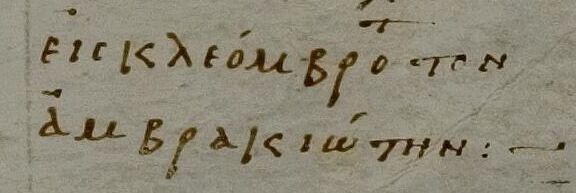 εἰς κλεόμβροτον
ἀμβρακιώτην:—